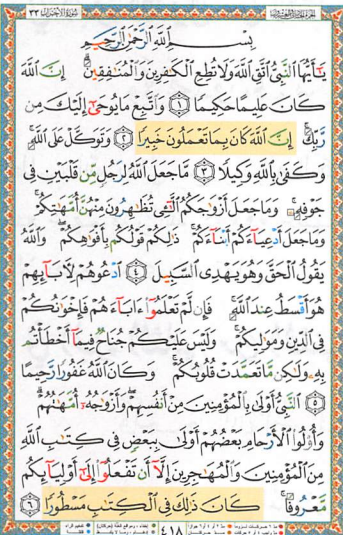 سُورَةُ الأَحْزَابِ ٣٣
بِسْمِ ٱللَّهِ ٱلرَّحْمَٰنِ ٱلرَّحِيمِ
يَٰٓأَيُّهَا ٱلنَّبِىُّ ٱتَّقِ ٱللَّهَ وَلَا تُطِعِ ٱلْكَٰفِرِينَ وَٱلْمُنَٰفِقِينَ ۗ إِنَّ ٱللَّهَ
كَانَ عَلِيمًا حَكِيمًا ١ وَٱتَّبِعْ مَا يُوحَىٰٓ إِلَيْكَ مِن
رَّبِّكَ ۚ إِنَّ ٱللَّهَ كَانَ بِمَا تَعْمَلُونَ خَبِيرًا ٢ وَتَوَكَّلْ عَلَى ٱللَّهِ ۚ
وَكَفَىٰ بِٱللَّهِ وَكِيلًا ٣ مَّا جَعَلَ ٱللَّهُ لِرَجُلٍ مِّن قَلْبَيْنِ فِى
جَوْفِهِۦ ۚ وَمَا جَعَلَ أَزْوَٰجَكُمُ ٱلَّٰٓـِٔى تُظَٰهِرُونَ مِنْهُنَّ أُمَّهَٰتِكُمْ ۚ
وَمَا جَعَلَ أَدْعِيَآءَكُمْ أَبْنَآءَكُمْ ۚ ذَٰلِكُمْ قَوْلُكُم بِأَفْوَٰهِكُمْ ۖ وَٱللَّهُ
يَقُولُ ٱلْحَقَّ وَهُوَ يَهْدِى ٱلسَّبِيلَ ٤ ٱدْعُوهُمْ لِءَابَآئِهِمْ
هُوَ أَقْسَطُ عِندَ ٱللَّهِ ۚ فَإِن لَّمْ تَعْلَمُوٓا۟ ءَابَآءَهُمْ فَإِخْوَٰنُكُمْ
فِى ٱلدِّينِ وَمَوَٰلِيكُمْ ۚ وَلَيْسَ عَلَيْكُمْ جُنَاحٌ فِيمَآ أَخْطَأْتُم
بِهِۦ وَلَٰكِن مَّا تَعَمَّدَتْ قُلُوبُكُمْ ۚ وَكَانَ ٱللَّهُ غَفُورًا رَّحِيمًا
٥ ٱلنَّبِىُّ أَوْلَىٰ بِٱلْمُؤْمِنِينَ مِنْ أَنفُسِهِمْ ۖ وَأَزْوَٰجُهُۥٓ أُمَّهَٰتُهُمْ ۗ
وَأُو۟لُوا۟ ٱلْأَرْحَامِ بَعْضُهُمْ أَوْلَىٰ بِبَعْضٍ فِى كِتَٰبِ ٱللَّهِ
مِنَ ٱلْمُؤْمِنِينَ وَٱلْمُهَٰجِرِينَ إِلَّآ أَن تَفْعَلُوٓا۟ إِلَىٰٓ أَوْلِيَآئِكُم
مَّعْرُوفًا ۚ كَانَ ذَٰلِكَ فِى ٱلْكِتَٰبِ مَسْطُورًا ٦
٤١٨